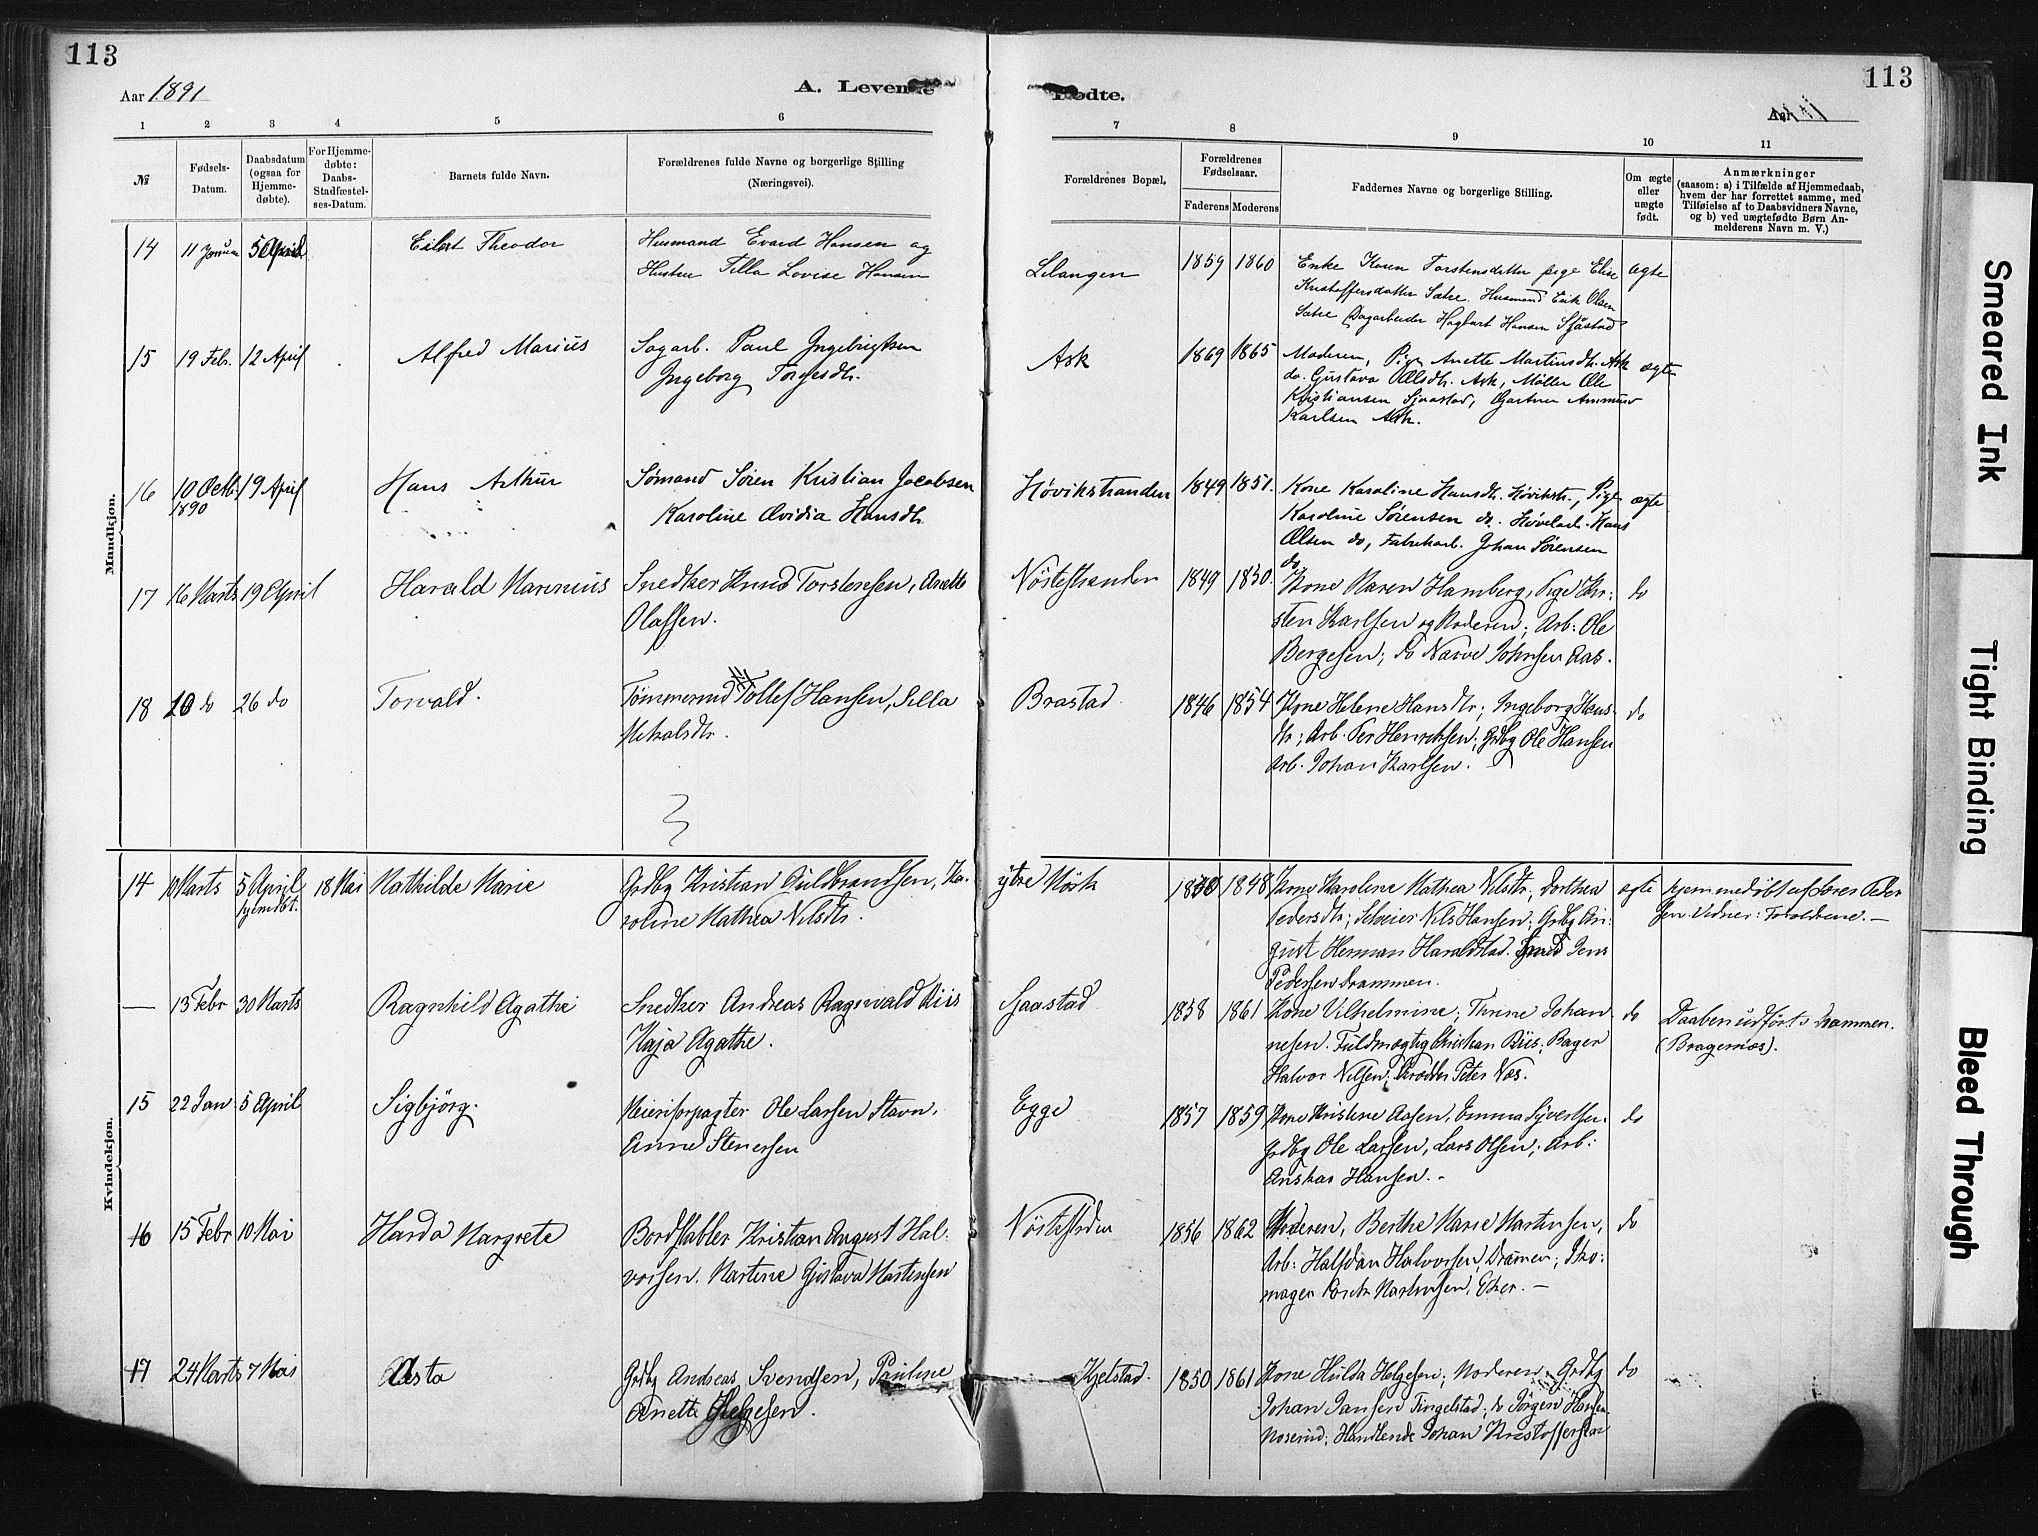 113
113
Aar 1891
A. Levende
Fødte.
1 2 3 4 5 6 7 8 9 10 11
№
Fødsels-
Datum.
Daabsdatum
(ogsaa for
Hjemme-
døbte).
For Hjemme-
døbte:
Daabs-
Stadfæstel-
ses-Datum.
Barnets fulde Navn.
Forældrenes fulde Navne og borgerlige Stilling
(Næringsvei).
Forældrenes Bopæl,
Forældrenes
Fødselsaar.
Faderens Moderens
Faddernes Navne og borgerlige Stilling.
Om ægte
eller
uægte
født.
Anmærkninger
(saasom: a) i Tilfælde af Hjemmedaab,
hvem der har forrettet samme, med
Tilføielse af to Daabsvidners Navne,
og b) ved uægtefødte Børn An-
melderens Navn m. V.)
Mandkjøn.
14 11 Januar 5 April Eilert Theodor
Husmand Evard Hansen og
Hustru Tilla Lovise Hansen
Lilangen 1859 1860
Enke Karen Torstensdatter pige Elise
Kristoffersdatter Sætre. Husmand Erik Olsen
Sætre Dagarbeider Hagbart Hansen Sjåstad
ægte
15 19 Febr. 12 April Alfred Marius
Sagarb. Paul Ingebrigtsen
Ingeborg Torgesdtr.
Ask 1869 1865
Moderen, Pige Anette Martinsdtr. Ask
do. Gustava Olsdtr. Ask, Møller Ole
Kristiansen Sjaastad, Gartner Ammund
Karlsen Ask.
ægte
16 10 Octb. 1890 19 April Hans Arthur
Sømand Søren Kristian Jacobsen
Karoline Ovidia Hansdtr.
Høvikstranden 1849 1851.
Kone Karoline Hansdtr. Høvikstr., Pige
Karoline Sørensen do. Høvelarb. Hans
Olsen do, Fabrikarb. Johan Sørensen
do
ægte
17 16 Marts 19 April Harald Marinius
Snedker Knud Torstensen, Anette
Olassen.
Nøstestranden 1849 1850.
Kone Maren Hamberg, Pige Kir:
sten Karlsen og Moderen; Arb: Ole
Bergesen; do Narve Johnsen Aas.
do
18 20 do 26 do Torvald.
Tømmermd Tollef Hansen, Silla
Mekalsdtr.
Brastad 1846 1854
Kone Helene Hansdtr; Ingeborg Hans-
dtr; Arb. Per Henriksen; Grdbg Ole Hansen
Arb. Johan Karlsen.
do
Kvindekjøn.
14 10 Marts 5 April hjemdbt. 18 Mai Mathilde Marie
Grdbg Kristian Guldbrandsen, Ka-
roline Mathea Nilsdtr.
ytre Mørk 1848
Kone Karoline Mathea Nilsdtr; Dorthea
Pedersdtr; Selveier Nils Hansen; Grdbg Au-
gust Herman Haraldstad. Smed Jens
Pedersen Drammen.
ægte
hjemmedøbt af Søren Peder
sen. Vidner: Forældrene. —
— 13 Febr 30 Marts Ragnhild Agathe
Snedker Andreas Ragnvald Riis
Kaja Agathe.
Sjaastad 1858 1861
Kone Vilhelmine; Thrine Johan
nesen. Fuldmægtig Christian Riis; Bager
Halvor Nilsen; Peter Næs.
do
Daaben udført i Drammen.
(Bragernæs).
15 22 Jan 5 April Sigbjörg.
Meieriforpagter Ole Larsen Stavn,
Anne Stenersen
Egge 1857 1859
Kone Kristine Aasen, Emma Syversen.
Grdbg Ole Larsen, Lars Olsen; Arb:
Anskar Hansen. -
do
16 15 Febr 10 Mai Harda Margrete
Bordstabler Kristian August Hal-
vorsen. Martine Gustava Martinsen
Nøstestrden 1856 1862
Moderen, Berthe Marie Martinsen,
Arb: Halfdan Halvorsen, Dramen; Sko:
mager Martinsen, Eker. —
do
17 24 Marts 7 Mai Asta
Grdbg Andreas Svendsen, Pauline
Anette Helgesen.
Kjelstad. 1850 1861
Kone Hulda Helgesen; Moderen. Grdbg
Johan Jansen Tingelstad; do Jørgen Hansen
Moserud; Handlende Johan Kristoffersen
do
Smeared Ink
Tight Binding
Bleed Through